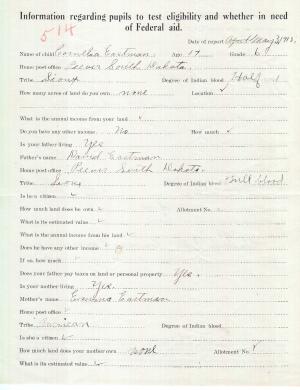 Information regarding pupils to test eligibility and whether in need
of Federal aid.
514
Date of report April May 3, 1913.
Name of child Cornelia Eastman. Age 17 Grade 6
Home post office Peever South Dakota.
Tribe Sioux Degree of Indian blood Half
How many acres of land do you own none Location
What is the annual income from your land
Do you have any other income No How much
Is your father living Yes
Father's name David Eastman
Home post office Peever South Dakota.
Tribe Sioux Degree of Indian blood Full blood
Is he a citizen
How much land does he own Allotment No.
What is its estimated value
What is the annual income from his land
Does he have any other income
If so, how much
Does your father pay taxes on land or personal property Yes.
Is your mother living Yes.
Mother's name Eastman
Home post office
Tribe Degree of Indian blood
Is she a citizen
How much land does your mother own none Allotment No.
What is its estimated value